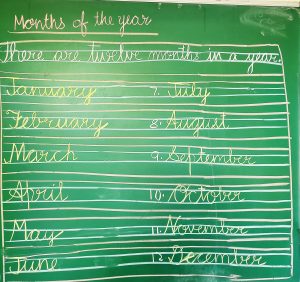 Months of the year
There are twelve months in a year.
January 7. July
February 8. August
March 9. September
April 10. October
May 11. November
June 12. December